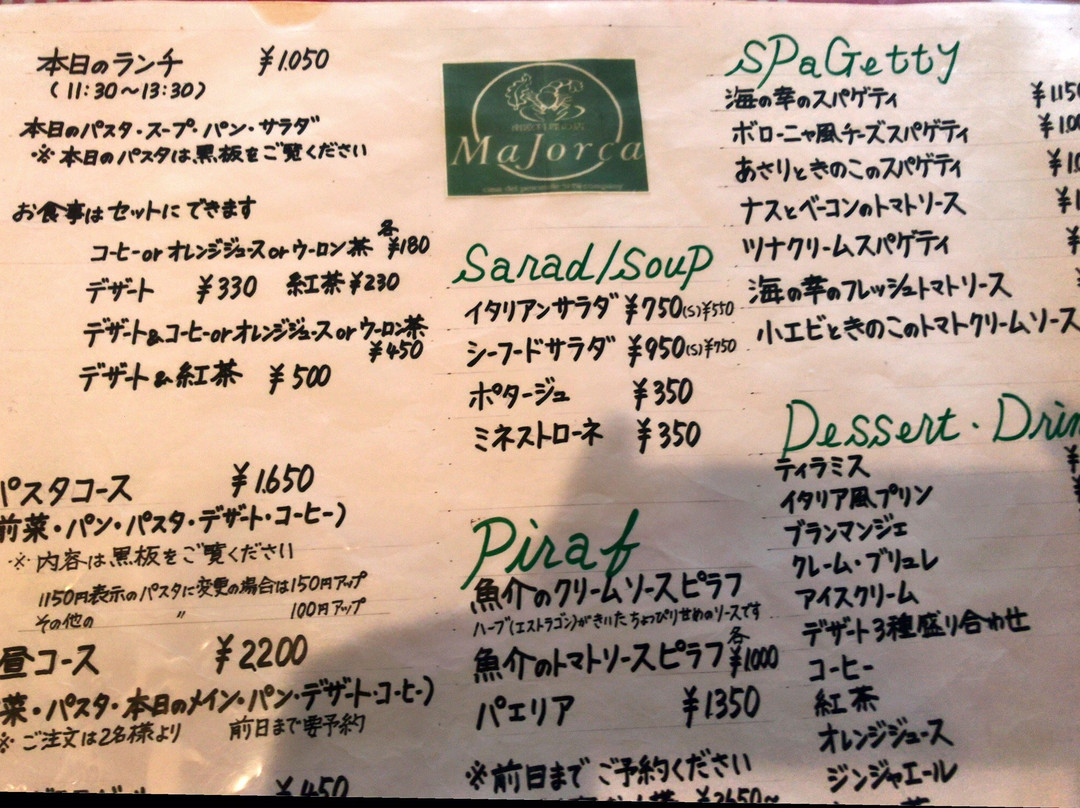 本日のランチ ¥1.050
(11:30～13:30)
本日のパスタ・スープ・パン・サラダ
※本日のパスタは、黒板をご覧ください
お食事はセットにできます
コーヒーorオレンジジュースorウーロン茶 各¥180
デザート ¥330 紅茶¥230
デザート&コーヒーorオレンジジュースorウーロン茶
¥450
デザート&紅茶 ¥500
パスタコース ¥1.650
前菜・パン・パスタ・デザート・コーヒー)
※内容は、黒板をご覧ください
1150円表示のパスタに変更の場合は150円アップ
その他の 〃 100円アップ
昼コース ¥2.200
菜・パスタ・本日のメイン・パン・デザート・コーヒー)
※ご注文は2名様より 前日まで要予約
¥450
Majorca
Sarad/Soup
イタリアンサラダ ¥750(S)¥550
シーフードサラダ ¥950(S)¥750
ポタージュ ¥350
ミネストローネ ¥350
Piraf
魚介のクリームソースピラフ
ハーブ(エストラゴン)がきいたちょっぴり甘めのソースです
魚介のトマトソースピラフ 各¥1.000
パエリア ¥1350
※前日までご予約ください
¥2650～
SPaGetty
海の幸のスパゲティ ¥1150
ボローニャ風チーズスパゲティ
あさりときのこのスパゲティ
ナスとベーコンのトマトソース
ツナクリームスパゲティ
海の幸のフレッシュトマトソース
小エビときのこのトマトクリームソース
Dessert・Drin
ティラミス
イタリア風プリン
ブランマンジェ
クレーム・ブリュレ
アイスクリーム
デザート3種盛り合わせ
コーヒー
紅茶
オレンジジュース
ジンジャエール